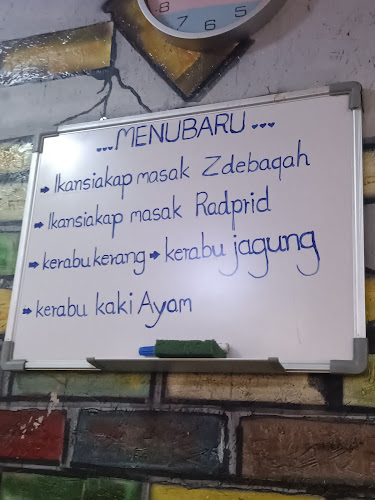 8 7 6 5
...MENUBARU...
➡ Ikansiakap masak Zdebaqah
➡ Ikansiakap masak Radprid
➡ kerabu kerang ➡ kerabu jagung
➡ kerabu kaki Ayam